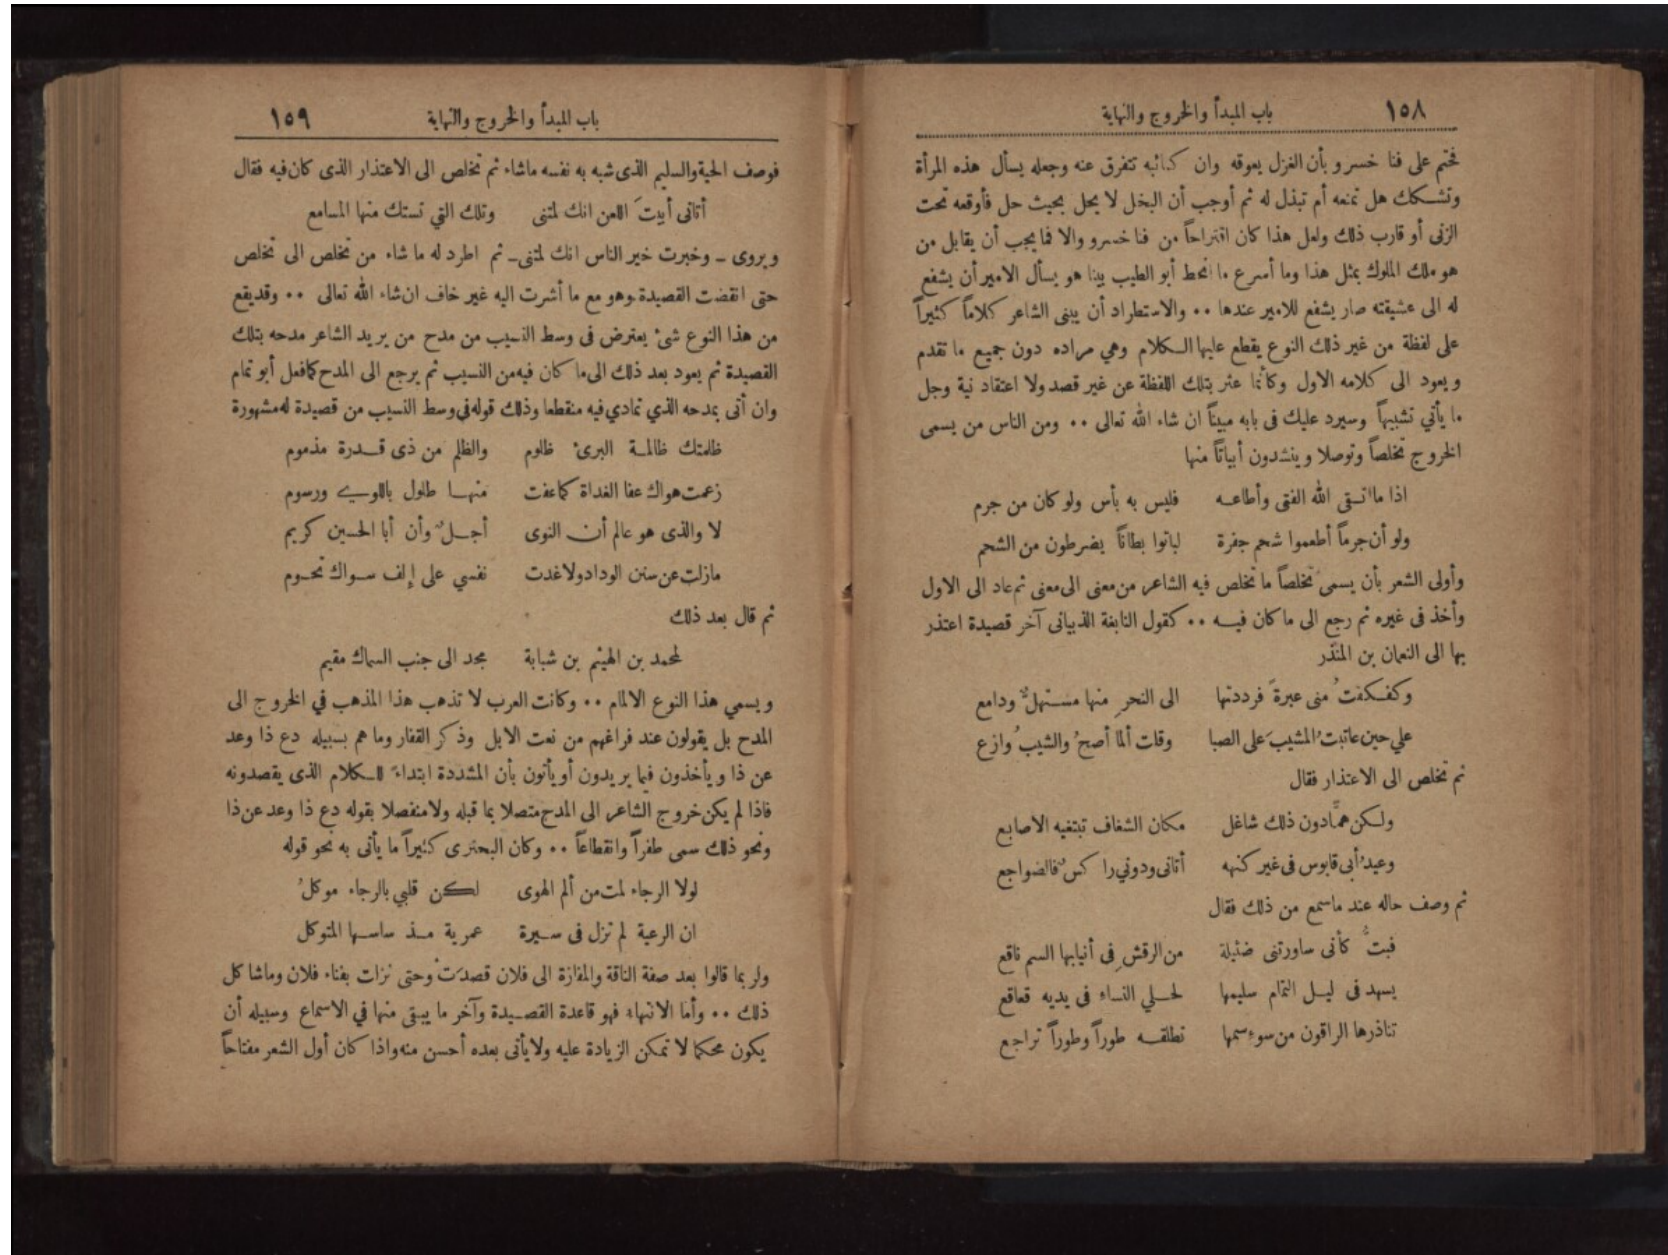 ١٥٨ باب المبدأ والخروج والنهاية
فختم على فنا خسرو بأن الغزل يعوقه وان كتائبه تتفرق عنه وجعله يسأل هذه المرأة
وتشكك هل تمنعه أم تبذل له ثم أوجب أن البخل لا يحل بحيث حل فأوقعه تحت
الزنى أو قارب ذلك ولعل هذا كان اقتراحاً من فنا خسرو والا فما يجب أن يقابل من
هو ملك الملوك بمثل هذا وما أسرع ما انحط أبو الطيب بينا هو يسأل الامير أن يشفع
له الى عشيقته صار يشفع للامير عندها ٠٠ والاستطراد أن يبنى الشاعر كلاماً كثيراً
على لفظة من غير ذلك النوع يقطع عليها الكلام وهي مراده دون جميع ما تقدم
ويعود الى كلامه الاول وكأنما عثر بتلك اللفظة عن غير قصد ولا اعتقاد نية وجل
ما يأتي تشبيهاً وسيرد عليك فى بابه مبيناً ان شاء الله تعالى ٠٠ ومن الناس من يسمى
الخروج تخلصاً وتوصلا وينشدون أبياتاً منها
اذا ما اتقى الله الفتى وأطاعه فليس به بأس ولو كان من جرم
ولو أن جرماً أطعموا شحم جفرة لباتوا بطاناً يضرطون من الشحم
وأولى الشعر بأن يسمى تخلصاً ما تخلص فيه الشاعر من معنى الى معنى ثم عاد الى الاول
وأخذ فى غيره ثم رجع الى ما كان فيه ٠٠ كقول النابغة الذبيانى آخر قصيدة اعتذر
بها الى النعمان بن المنذر
وكفكفتُ منى عبرةً فرددتها الى النحرِ منها مستهلٌ ودامع
علي حين عاتبتُ المشيبَ على الصبا وقلت ألمّا أصحُ والشيبُ وازع
ثم تخلص الى الاعتذار فقال
ولكن همّاً دون ذلك شاغل مكان الشغاف تبتغيه الاصابع
وعيدُ أبى قابوس فى غير كنهه أتانى ودوني راكسٌ فالضواجع
ثم وصف حاله عند ما سمع من ذلك فقال
فبتُّ كأنى ساورتنى ضئيلة من الرقشِ فى أنيابها السم ناقع
يسهد فى ليل التمام سليمها لحلي النساء فى يديه قعاقع
تناذرها الراقون من سوءِ سمها تطلقه طوراً وطوراً تراجع
باب المبدأ والخروج والنهاية ١٥٩
فوصف الحية والسليم الذى شبه به نفسه ماشاء ثم تخلص الى الاعتذار الذى كان فيه فقال
أتانى أبيتَ اللعن انك لمتنى وتلك التي تستك منها المسامع
ويروى ـ وخبرت خير الناس انك لمتنى ـ ثم اطرد له ما شاء من تخلص الى تخلص
حتى انقضت القصيدة وهو مع ما أشرت اليه غير خاف ان شاء الله تعالى ٠٠ وقد يقع
من هذا النوع شئ يعترض فى وسط النسيب من مدح من يريد الشاعر مدحه بتلك
القصيدة ثم يعود بعد ذلك الى ما كان فيه من النسيب ثم يرجع الى المدح كما فعل أبو تمام
وان أتى بمدحه الذي تمادي فيه منقطعا وذلك قوله فى وسط النسيب من قصيدة له مشهورة
ظلمتك ظالمة البرئ ظلوم والظلم من ذى قدرة مذموم
زعمت هواك عفا الغداة كما عفت منها طلول باللوى ورسوم
لا والذى هو عالم أن النوى أجلٌ وأن أبا الحسين كريم
مازلت عن سنن الوداد ولا غدت نفسي على إلف سواك تحوم
ثم قال بعد ذلك
لمحمد بن الهيثم بن شبابة مجد الى جنب السماك مقيم
ويسمي هذا النوع الالمام ٠٠ وكانت العرب لا تذهب هذا المذهب في الخروج الى
المدح بل يقولون عند فراغهم من نعت الابل وذكر القفار وما هم بسبيله دع ذا وعد
عن ذا ويأخذون فيما يريدون أو يأتون بأن المشددة ابتداءً للكلام الذى يقصدونه
فاذا لم يكن خروج الشاعر الى المدح متصلا بما قبله ولا منفصلا بقوله دع ذا وعد عن ذا
ونحو ذلك سمى طفراً وانقطاعاً ٠٠ وكان البحترى كثيراً ما يأتى به نحو قوله
لولا الرجاء لمت من ألم الهوى لكن قلبي بالرجاء موكلُ
ان الرعية لم تزل فى سيرة عمرية مذ ساسها المتوكل
ولربما قالوا بعد صفة الناقة والمفازة الى فلان قصدَتْ وحتى نزلت بفناء فلان وماشا كل
ذلك ٠٠ وأما الانتهاء فهو قاعدة القصيدة وآخر ما يبقى منها في الاسماع وسبيله أن
يكون محكما لا تمكن الزيادة عليه ولا يأتى بعده أحسن منه واذا كان أول الشعر مفتاحاً